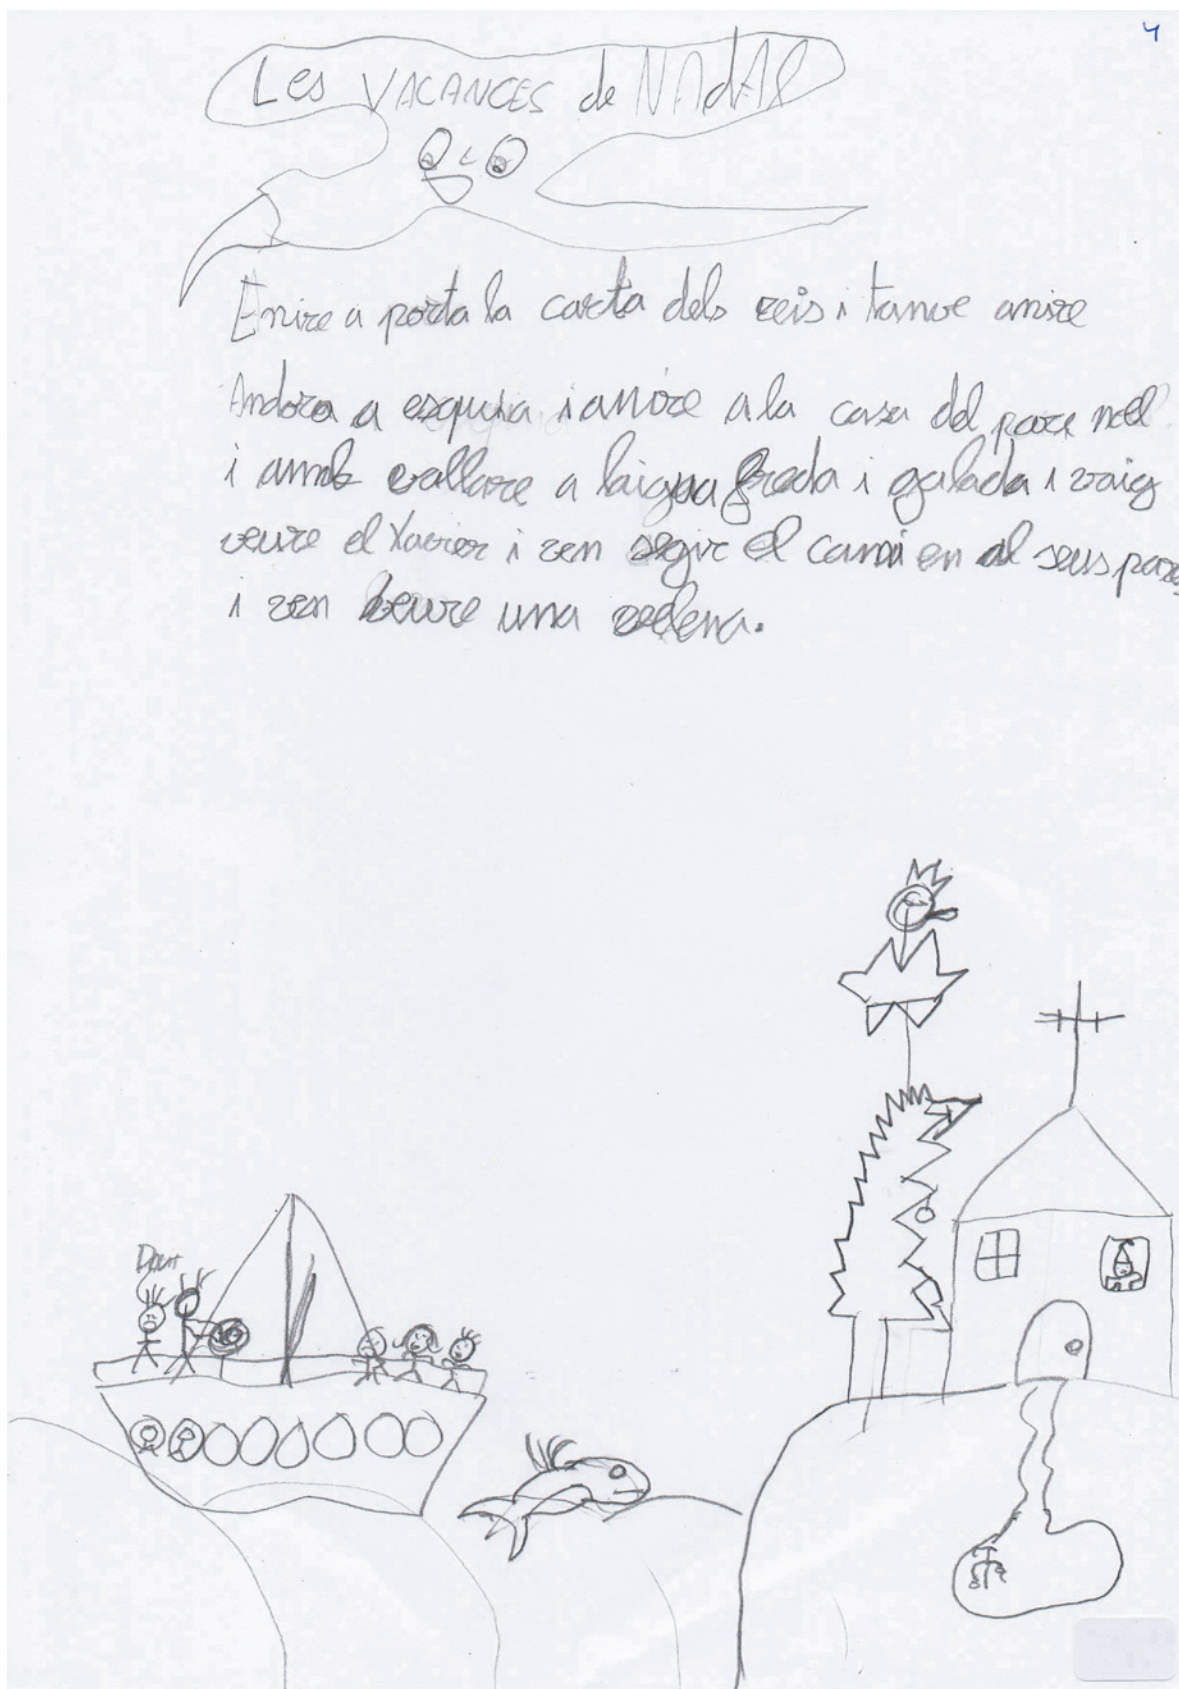 4
Les VACANCES de NAdAl
Enire a porta la carta dels reis i tanve anire
Andora a esquia i anire a la casa del pare noel
i amb vallare a laigua freda i galada i vaig
veure el Xavier i ven segir el cami en al seus pares
i ven veure una velena.